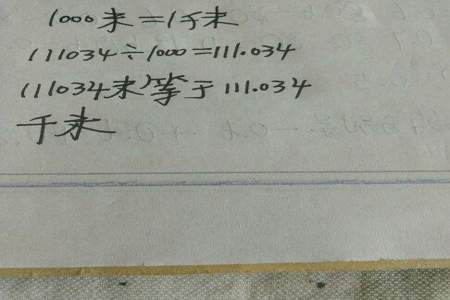 1000米=1千米
111034÷1000=111.034
111034米等于111.034
千米